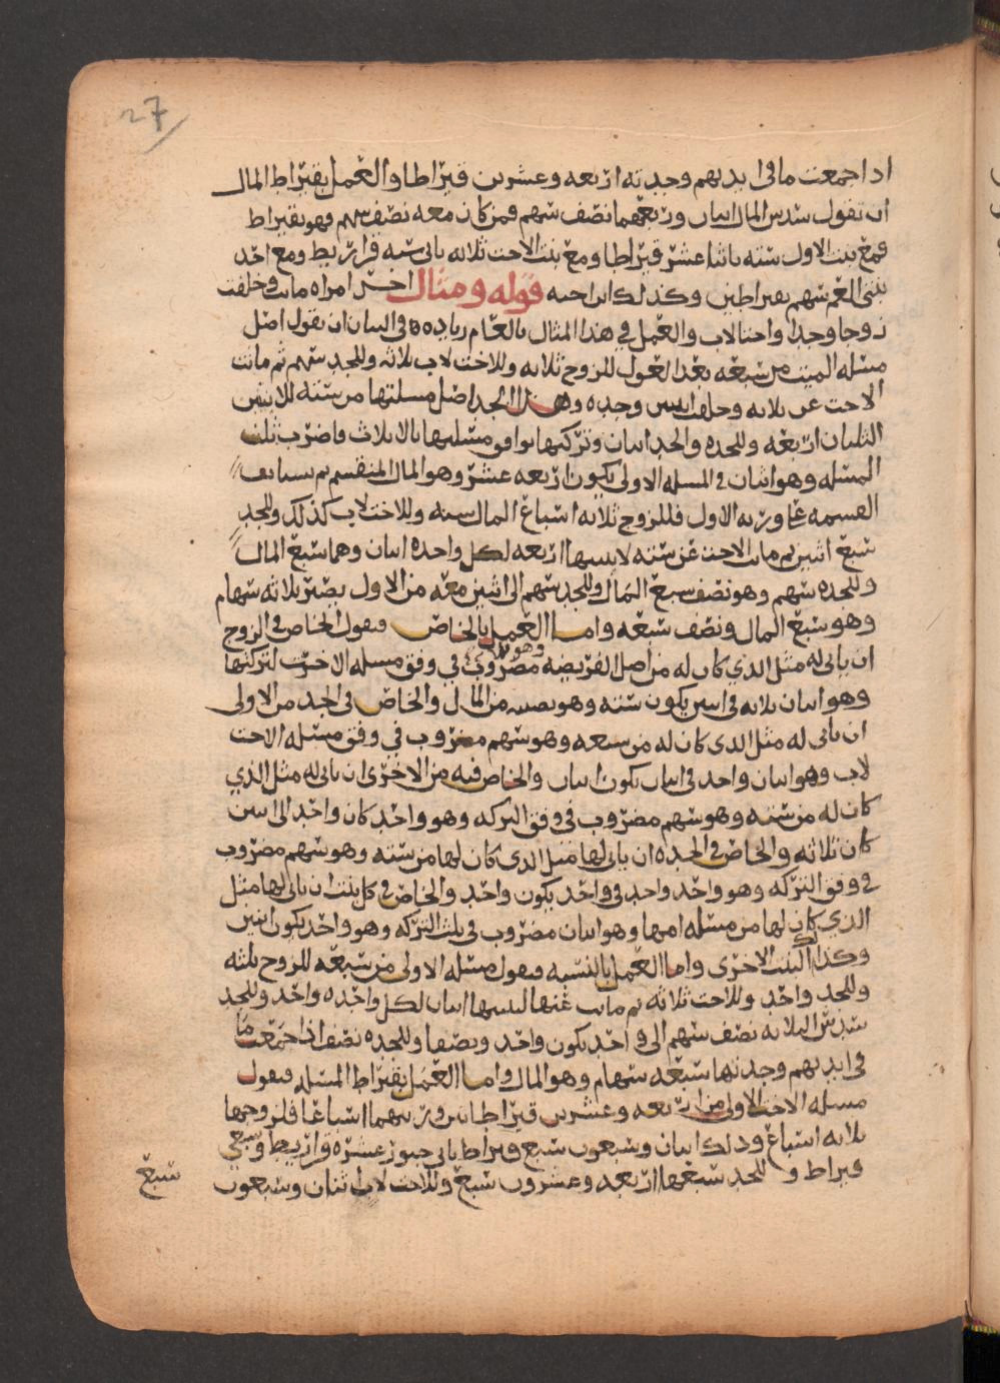 27
اذا جمعت ما في ايديهم وجدته اربعه وعشرين قيراطا والعمل بقيراط المال
ان تقول سدس المال اثنان وربعهما نصف سهم فمن كان معه نصف سهم فهو بقيراط
فمع بنت الاول سته باثنا عشر قيراطا ومع بنت الاخت ثلاثه ياتي سته قراريط ومع احد
بنتي العم سهم بقيراطين وكذلك اختها قوله ومثال اخر امراه ماتت وخلفت
زوجا وجدا واختا لاب والعمل في هذا المثال بالعام زياده في البيان ان تقول اصل
مسله الميت من سبعه بعد العول للزوج ثلاثه وللاخت لاب ثلاثه وللجد سهم ثم ماتت
الاخت عن ثلاثه وخلفت ابنتين وجده وهذا الجد اصل مسلتها من سته للابنتين
الثلثان اربعه وللجده والجد اثنان وتركتها توافق مسلتها بالاثلاث فاضرب ثلث
المسله وهو اثنان في المسله الاولى يكون اربعه عشر وهو المال المنقسم ثم تستانف
القسمه على ورثه الاول فللزوج ثلاثه اسباع المال سته وللاخت لاب كذلك وللجد
سبع اثنين ثم ماتت الاخت عن سته لابنتيها اربعه لكل واحده اثنان وهما سبع المال
وللجده سهم وهو نصف سبع المال وللجد سهم الى اثنين معه من الاول يصير ثلاثه سهام
وهو سبع المال ونصف سبعه واما العمل بالخاص فتقول الخاص في الزوج
ان ياتي له مثل الذي كان له من اصل الفريضه وهو مضروب في وفق مسله الاخرى لتركتها
وهو اثنان ثلاثه في اثنين يكون سته وهو نصيبه من المال والخاص في الجد من الاولى
ان ياتي له مثل الذي كان له من سبعه وهو سهم مضروب في وفق مسله الاخت
لاب وهو اثنان واحد في اثنان يكون اثنان والخاص فيه من الاخرى ان ياتي له مثل الذي
كان له من سته وهو سهم مضروب في وفق التركه وهو واحد كان واحد الى اثنين
كان ثلاثه والخاص في الجده ان ياتي لها مثل الذي كان لها من سته وهو سهم مضروب
في وفق التركه وهو واحد واحد في واحد يكون واحد والخاص في كل بنت ان ياتي لها مثل
الذي كان لها من مسله امها وهو اثنان مضروب في ثلث التركه وهو واحد يكون اثنين
وكذلك البنت الاخرى واما العمل بالنسبه فتقول مسله الاولى من سبعه للزوج ثلثه
وللجد واحد وللاخت ثلاثه ثم ماتت عنها لابنتيها اثنان لكل واحده واحد وللجد
سدس الثلاثه نصف سهم الى واحد يكون واحد ونصفا وللجده نصف اذا جمعت ما
في ايديهم وجدتها سبعه سهام وهو المال واما العمل بقيراط المسله فتقول
مسله الاخت الاولى من اربعه وعشرين قيراطا بين ورثتهما اسباعا فلزوجها
ثلاثه اسباع وذلك اثنان وسبعون سبع قيراط ياتي عشره قراريط وسبعي
قيراط وللجد سبعها اربعه وعشرون سبع وللاخت لاب اثنان وسبعون
سبع